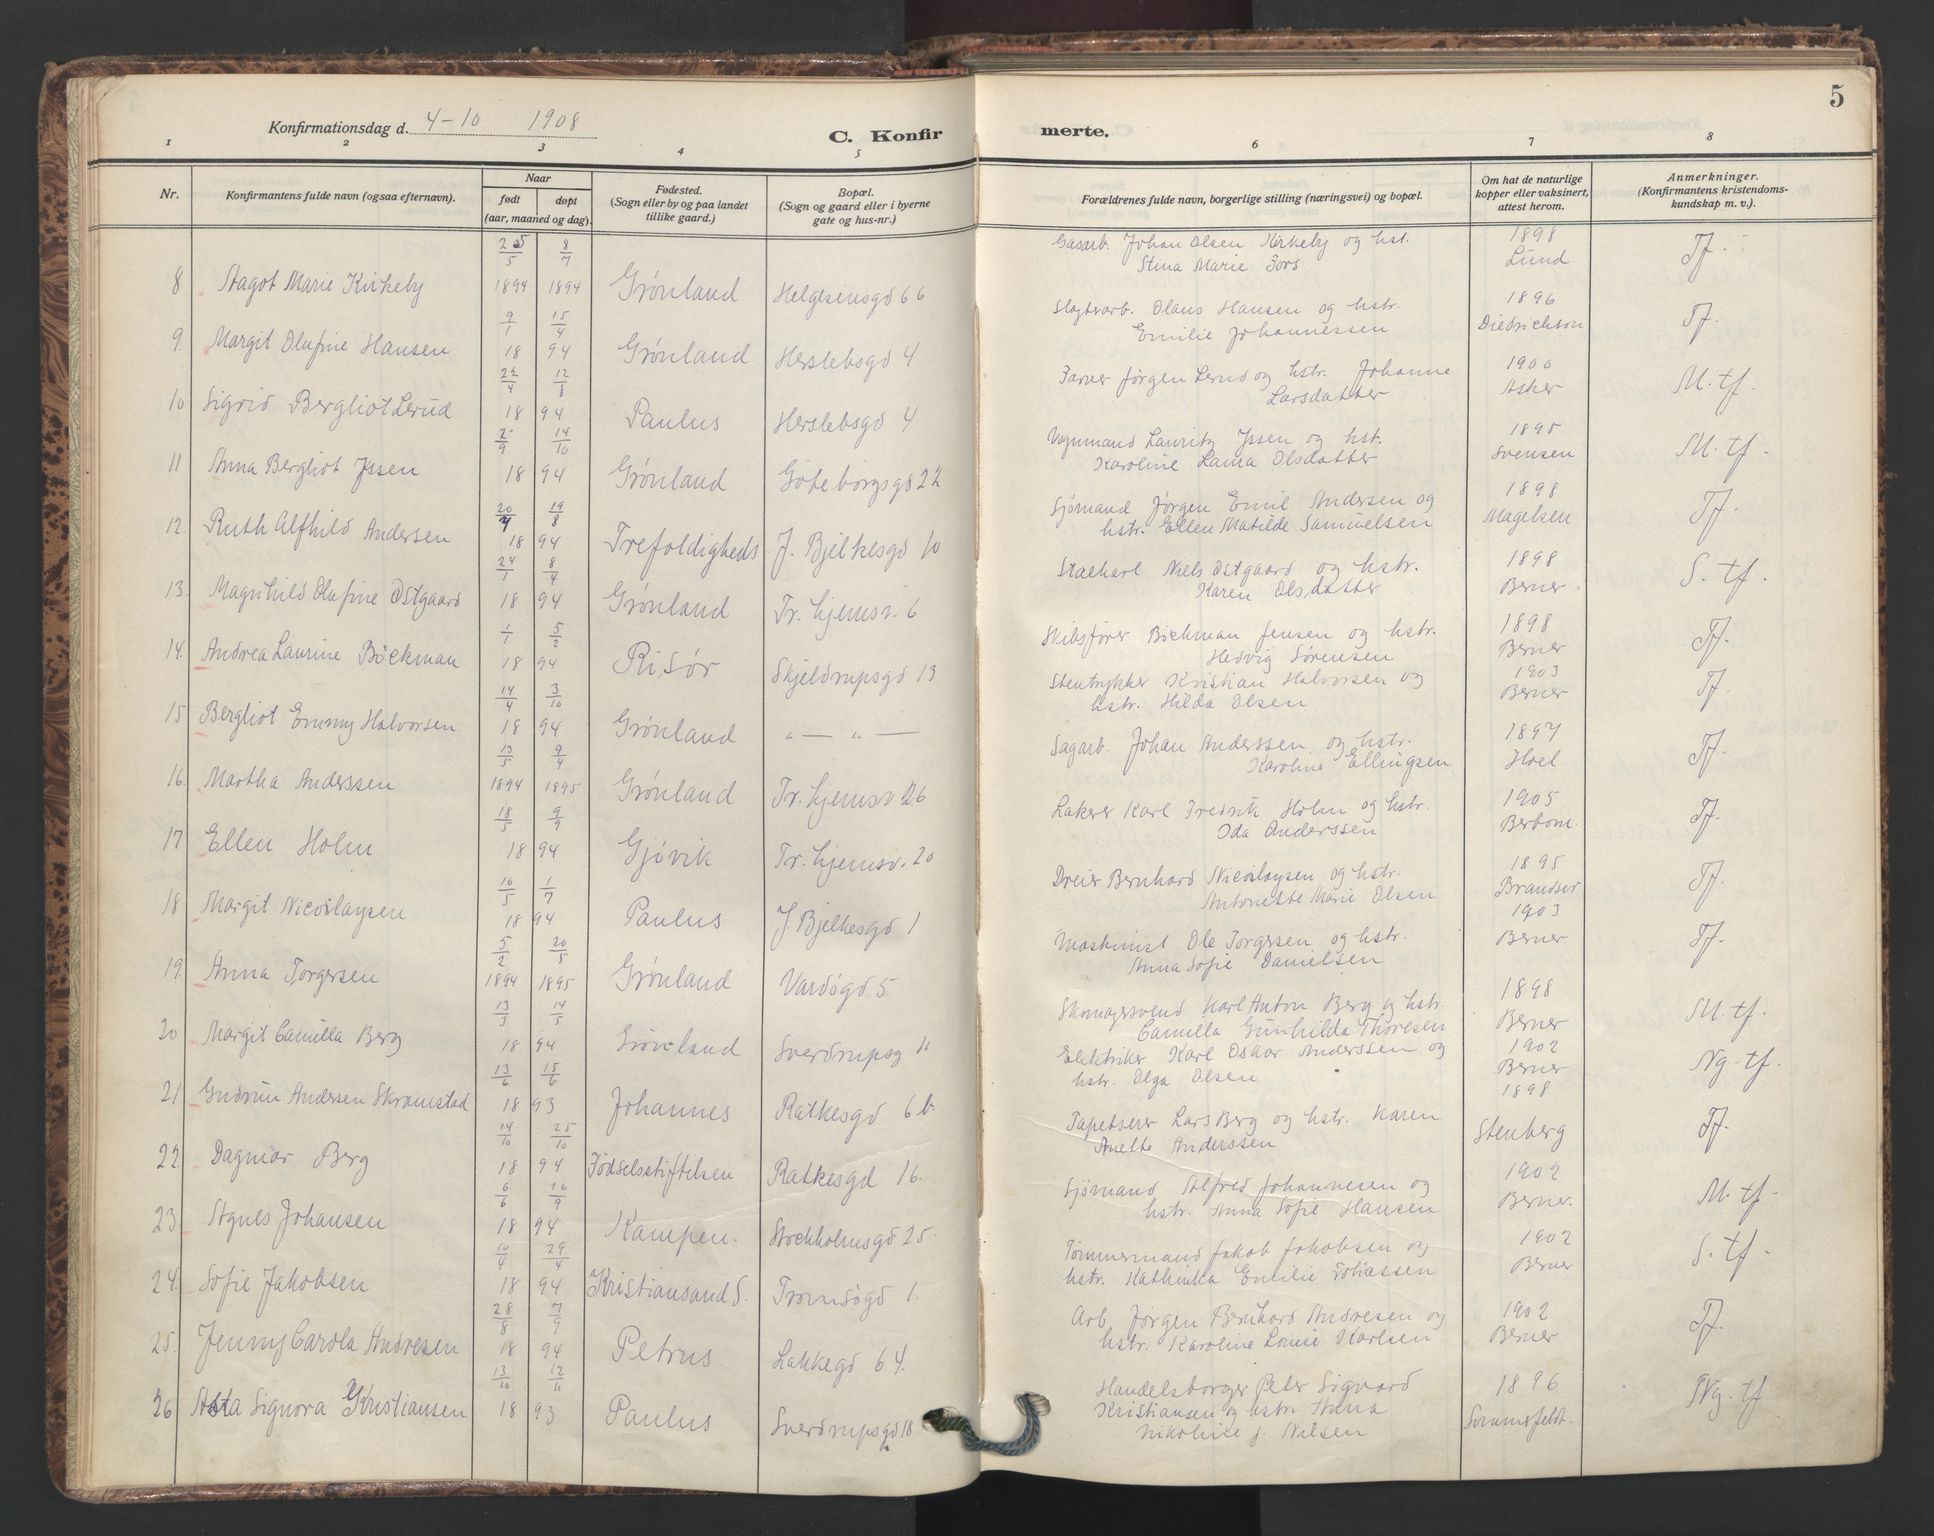 5
Konfirmationsdag d. 4-10 1908
C. Konfirmerte.
1 2 3 4 5 6 7 8
Nr. Konfirmantens fulde navn (ogsaa efternavn). Naar født døpt (aar, maaned og dag). Fødested. (Sogn eller by og paa landet tillike gaard.) Bopæl. (Sogn og gaard eller i byerne gate og hus-nr.) Forældrenes fulde navn, borgerlige stilling (næringsvei) og bopæl. Om hat de naturlige kopper eller vaksinert, attest herom. Anmerkninger. (Konfirmantens kristendomskundskap m. v.).
8 Aagot Marie Kirkeby 25/5 1894 8/7 1894 Grønland Helgesensgd 66 Gasarb. Johan Olsen Kirkeby og hst. Stina Marie Fors 1898 Lund Tf.
9. Margit Olufine Hansen 9/1 15/4 1894 Grønland Herslebsgd 4 Slagterarb. Olaus Hansen og hstr. Emilie Johannessen 1896 Diedrichson Tf.
10 Sigrid Bergliot Lerud 22/4 12/8 1894 Paulus Herslebsgd 4 Farver Jørgen Lerud og hstr. Johanne Larsdatter 1900 Asker M. tf.
11 Anna Bergliot Issen 2/9 14/10 1894 Grønland Göteborgsgd 22 Vognmand Lauritz Issen og hst. Karoline Laura Olsdatter 1895 Svensen M. tf.
12. Ruth Alfhild Andersen 20/7 19/8 1894 Trefoldigheds J. Bjelkesgd 10 Sjømand Jørgen Emil Andersen og hstr. Ellen Matilde Samuelsen 1898 Magelsen Tf.
13. Magnhild Olufine Østgaard 24/1 8/4 1894 Grønland Tr. hjemsv. 6 Staekarl Niels Østgaard og hstr. Karen Olsdatter 1898 Berner S. tf.
14. Andrea Laurine Bøckman 1/1 5/2 1894 Risør Skjeldrupsgd 13 Skibsfører Bøckman Jensen og hstr. Hedvig Sørensen 1898 Berner Tf.
15 Bergliot Emmy Halvorsen 14/4 3/10 1894 Grønland " — " — Stentrykker Kristian Halvorsen og hstr. Hilda Olsen 1903 Berner Tf.
16. Martha Anderssen 13/5 1894 9/4 1895 Grønland Tr. hjemsv 26 Sagarb. Johan Anderssen og hstr. Karoline Ellingsen 1897 Hoel Tf.
17 Ellen Holm 18/5 9/9 1894 Gjøvik Tr. hjemsv. 20 Lakerer Karl Fredrik Holm og hstr. Ida Anderssen 1905 Tf.
18 Margit Nicolaysen 16/5 1/7 1894 Paulus J. Bjelkesgd 1 Dreier Bernhard Nicolaysen og hstr. Antonette Marie Olsen 1895 Tf.
19. Anna Torgersen 5/2 1894 20/5 1895 Grønland Vardøgd 5 Maskinist Ole Torgersen og hstr. Anna Sofie Danielsen 1903 Berner Tf.
20 Margit Camilla Berg 13/3 14/5 1894 Grønland Sverdrupsg 11 Skomagersvend Karl Anton Berg og hstr. Camilla Gunhilda Thoresen 1898 Berner M. tf.
21 Gudrun Andersen Skramstad 13/6 15/6 1893 Johannes Ratkesgd 6 b. Elektriker Karl Oskar Anderssen og hstr. Olga Olsen 1902 Berner Ng. tf.
22. Dagmar Berg 14/10 25/10 1894 Fødselsstiftelsen Ratkesgd 16. Tapetserer Lars Berg og hstr. Karen Anette Anderssen 1898 Stenberg Tf.
23 Agnes Johansen 6/6 16/9 1894 Kampen. Stockholmsgd 25. Sjømand Alfred Johannesen og hstr. Anna Sofie Hansen 1902 Berner. M. tf.
24. Sofie Jakobsen 10/4 29/4 1894 Kristiansand S. Tromsøgd 1. Tømmermand Jakob Jakobsen og hstr. Kathinka Emilie Tobiassen 1902 Berner S. tf.
25. Jenny Carola Andresen 28/8 7/9 1894 Petrus Lakkegd 64. Arb. Jørgen Bernhard Andresen og hstr. Karoline Louise Karlsen 1902 Berner Tf.
26 Asta Signora Kristiansen 13/10 12/11 1893 Paulus Sverdrupsgd 18 Handelsborger Peter Sigvard Kristiansen og hstr. Anna Nikoline f. Nilsen 1896 Sommerfeldt. Ng. tf.